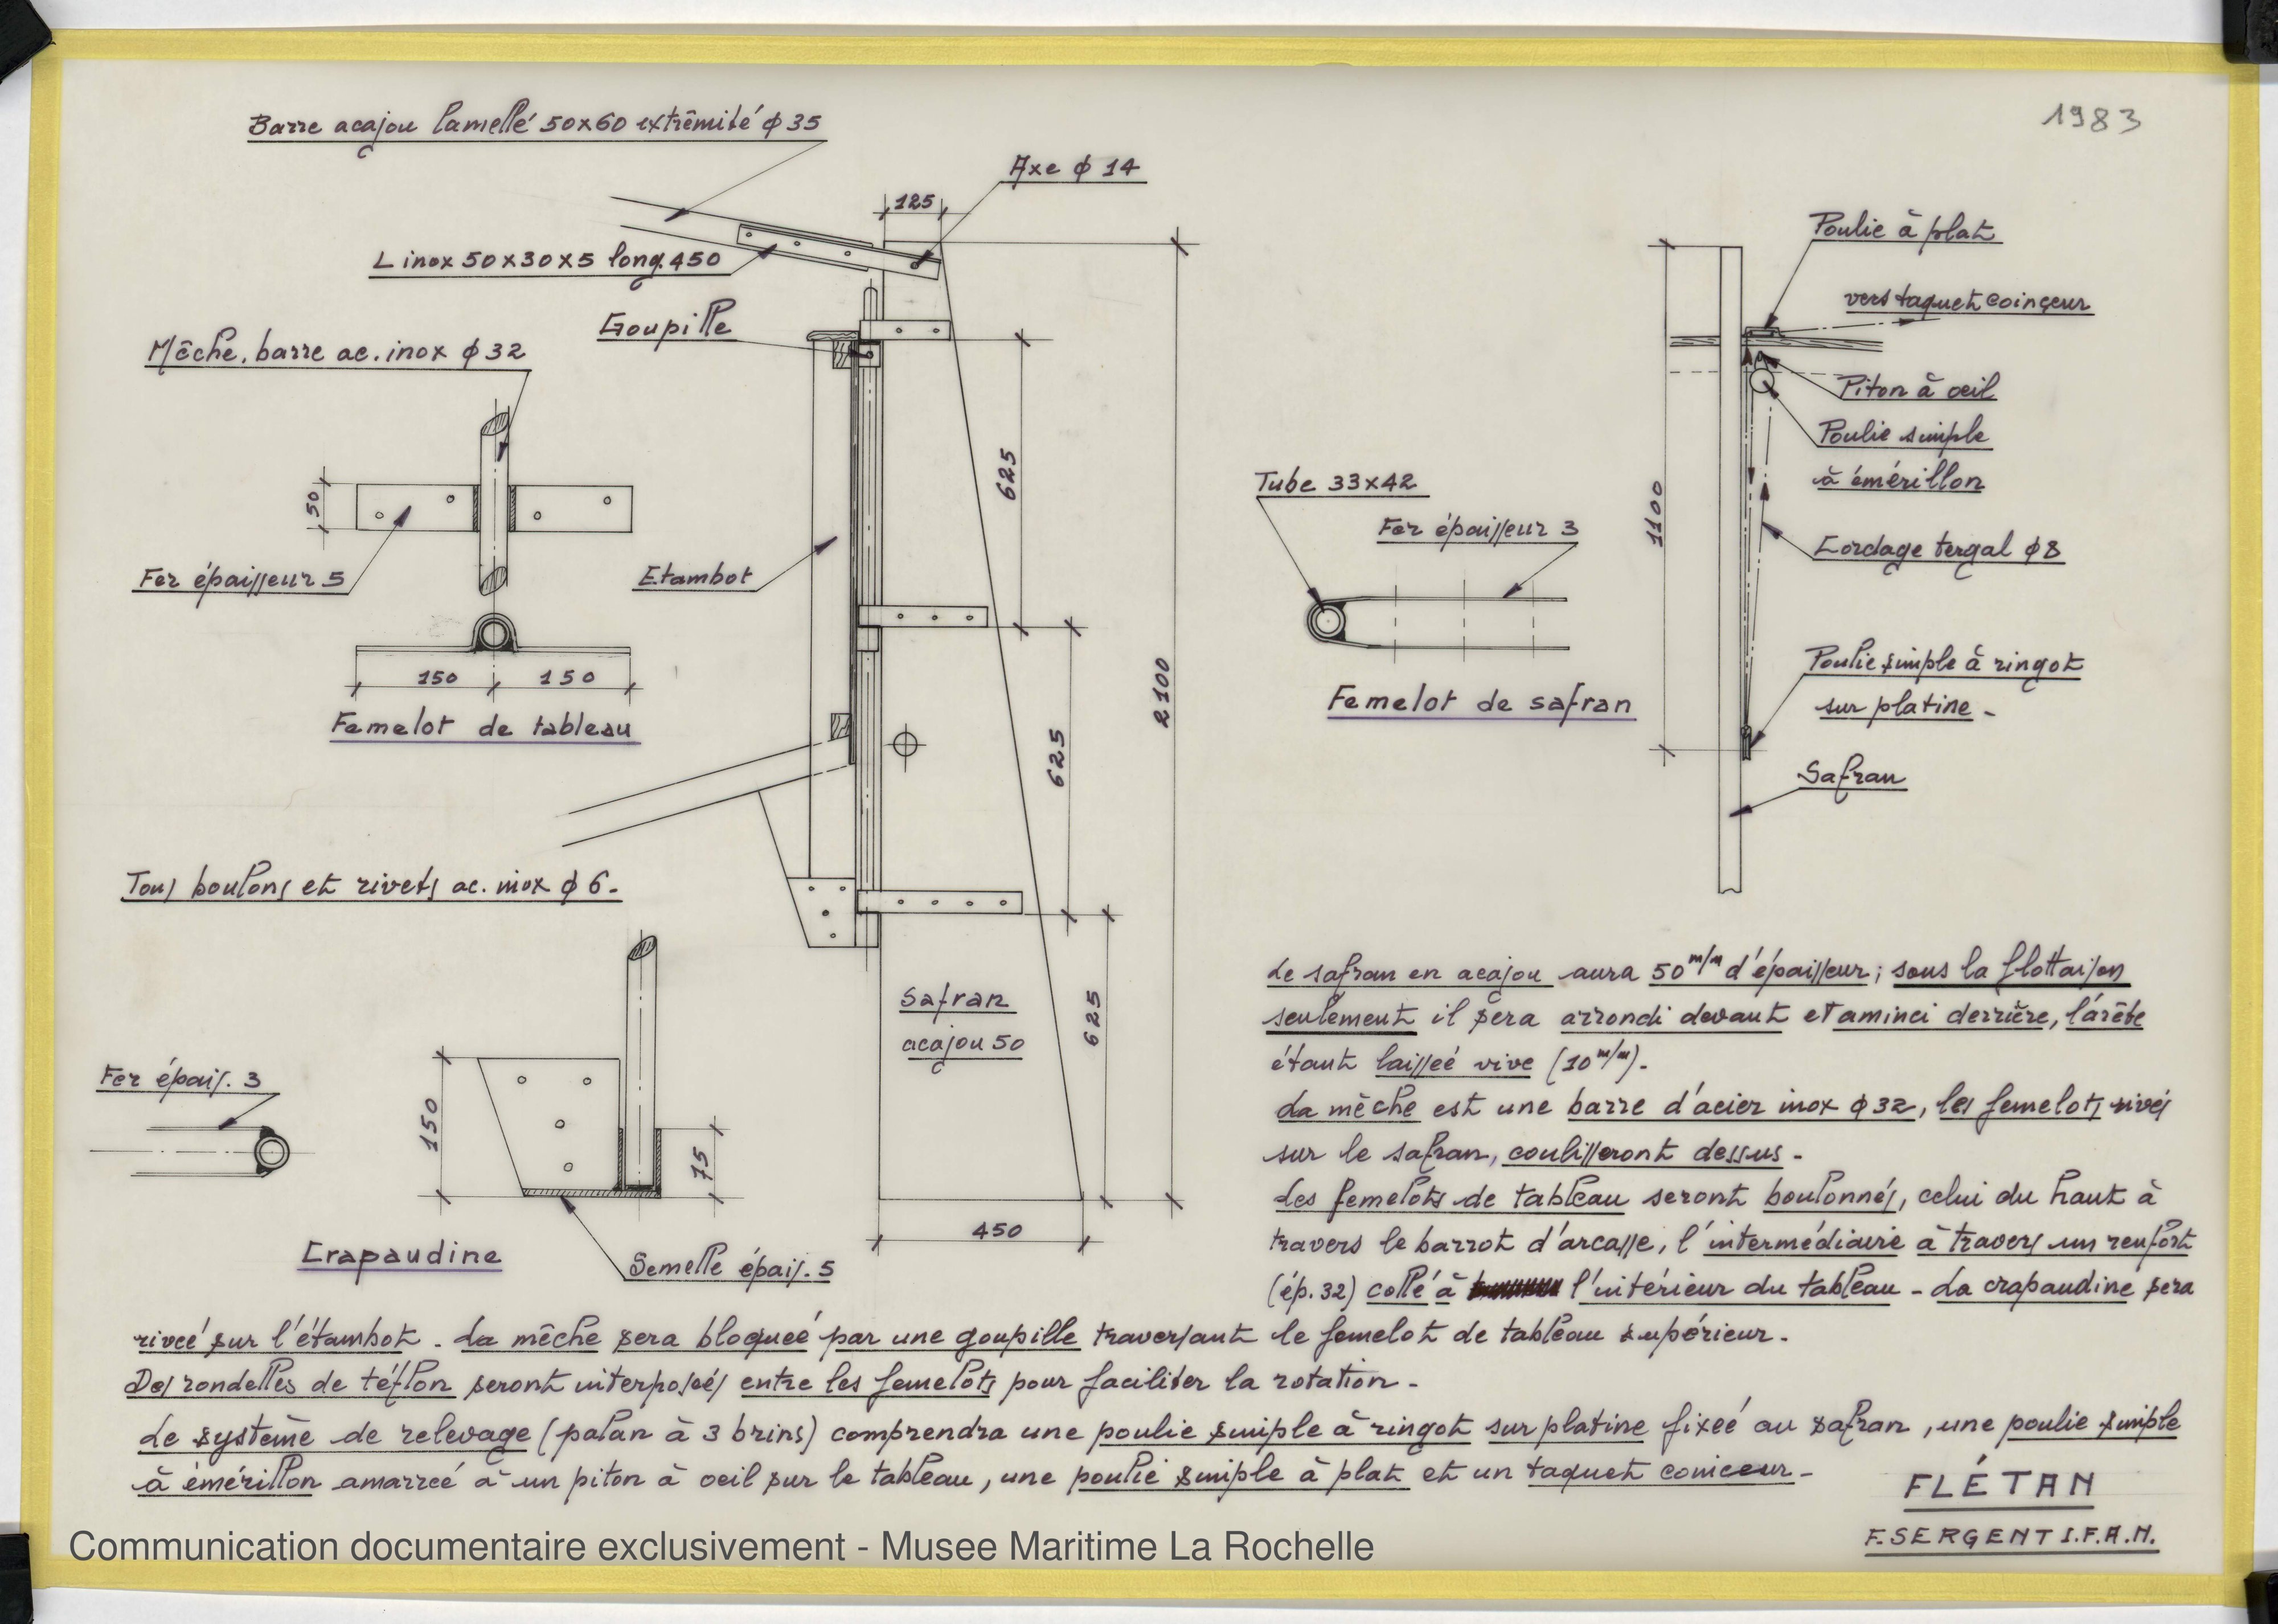 Barre acajou lamellé 50x60 extrêmité ϕ 35
1983
Axe ϕ 14
125
L inox 50x30x5 long. 450
Goupille
Mêche. barre ac. inox ϕ 32
50
Fer épaisseur 5
Etambot
150 150
Femelot de tableau
625
625
2100
625
Tous boulons et rivets ac. inox ϕ 6.
Safran
acajou 50
450
Fer épais. 3
150
75
Crapaudine
Semelle épais. 5
Tube 33x42
Fer épaisseur 3
Femelot de safran
1100
Poulie à plat
vers taquet coinçeur
Piton à oeil
Poulie simple
à émérillon
Cordage tergal ϕ 8
Poulie simple à ringot
sur platine -
Safran
Le safran en acajou aura 50 m/m d'épaisseur ; sous la flottaison
seulement il sera arrondi devant et aminci derrière, l'arête
étant laisseé vive (10 m/m).
La mêche est une barre d'acier inox ϕ 32, les femelots rivés
sur le safran, coulisseront dessus -
Les femelots de tableau seront boulonnés, celui du haut à
travers le barrot d'arcasse, l'intermédiaire à travers un renfort
(ép. 32) collé à l'intérieur du tableau - La crapaudine sera
riveé sur l'étambot. La mêche sera bloqueé par une goupille traversant le femelot de tableau supérieur.
Des rondelles de téflon seront interposeés entre les femelots pour faciliter la rotation -
Le système de relevage (palan à 3 brins) comprendra une poulie simple à ringot sur platine fixeé au safran, une poulie simple
à émérillon amarreé à un piton à oeil sur le tableau, une poulie simple à plat et un taquet coinceur -
FLÉTAN
F. SERGENT I.F.A.N.
Communication documentaire exclusivement - Musee Maritime La Rochelle